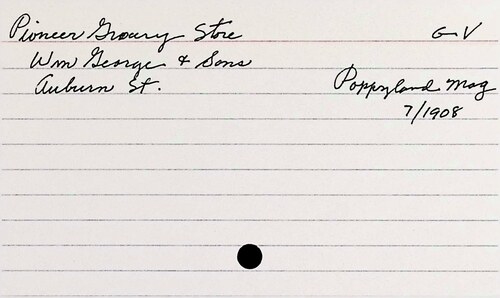 Pioneer Grocery Store
G V
Wm George & Sons
Auburn St.
Poppyland Mag
7/1908